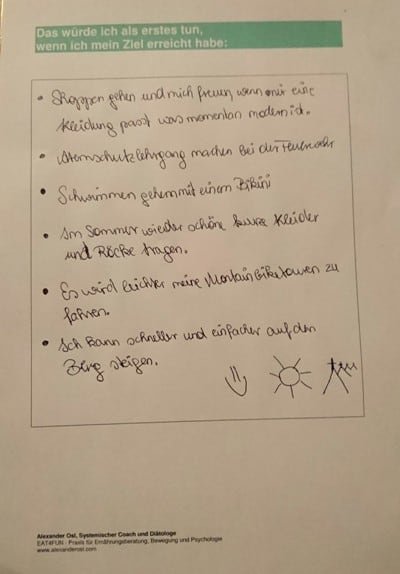 Das würde ich als erstes tun,
wenn ich mein Ziel erreicht habe:
• Shoppen gehen und mich freuen wenn mir eine
Kleidung passt was momentan modern ist.
• Atemschutzlehrgang machen bei der Feuerwehr
• Schwimmen gehen mit einem Bikini
• Im Sommer wieder schöne kurze Kleider
und Röcke tragen.
• Es wird leichter meine Montainbiketouren zu
fahren.
• Ich kann schneller und einfacher auf den
Berg steigen.
Alexander Osl, Systemischer Coach und Diätologe
EAT4FUN - Praxis für Ernährungsberatung, Bewegung und Psychologie
www.alexanderosl.com